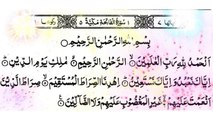 سُوْرَةُ الْفَاتِحَةِ مَكِّيَّةٌ
بِسْمِ اللّٰهِ الرَّحْمٰنِ الرَّحِيْمِ
اَلْحَمْدُ لِلّٰهِ رَبِّ الْعٰلَمِيْنَ الرَّحْمٰنِ الرَّحِيْمِ مٰلِكِ يَوْمِ الدِّيْنِ
نَسْتَعِيْنُ اِهْدِنَا الصِّرَاطَ الْمُسْتَقِيْمَ صِرَاطَ الَّذِيْنَ
اَنْعَمْتَ عَلَيْهِمْ غَيْرِ الْمَغْضُوْبِ عَلَيْهِمْ وَلَا الضَّآلِّيْنَ